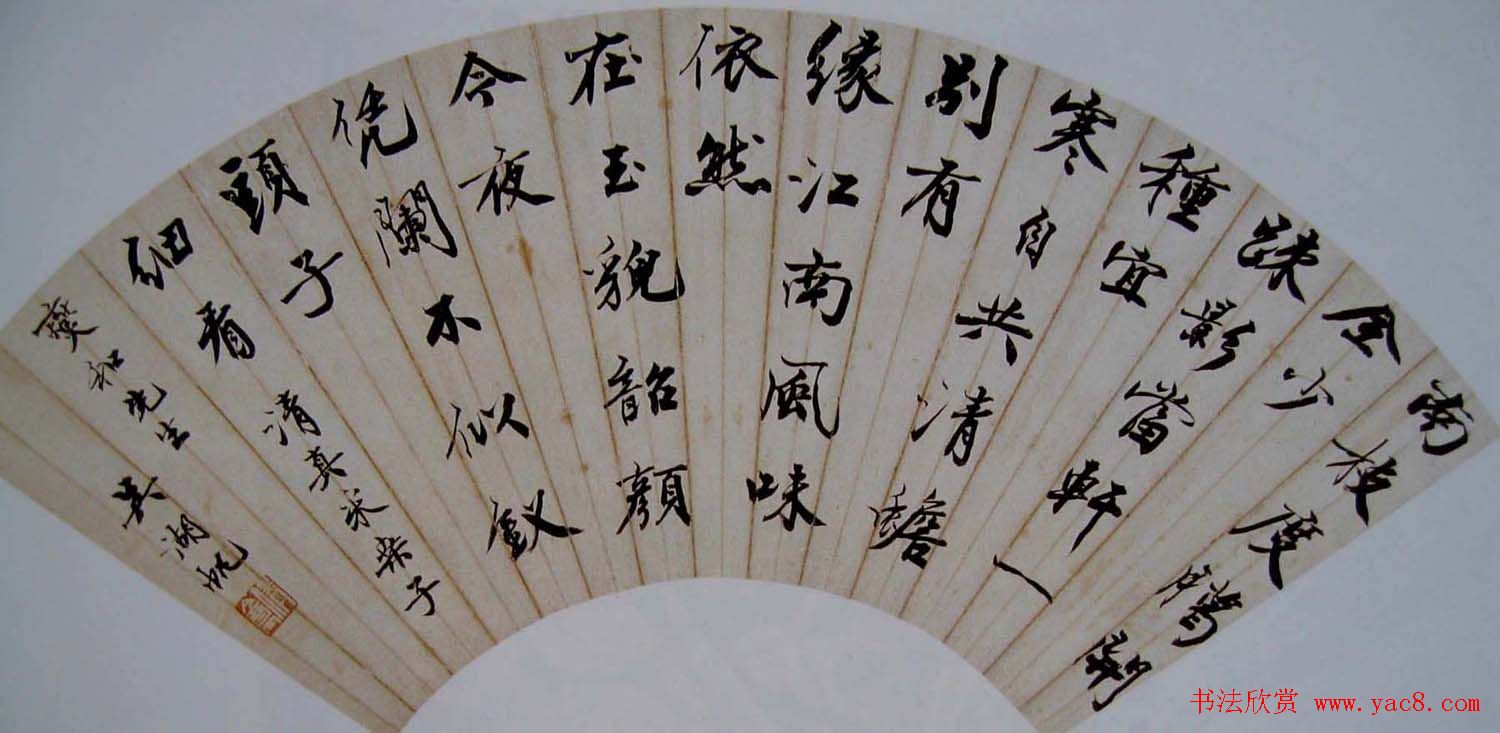 南枝度臘開
全少
踈影當軒一
種宜
寒自共清蟾
別有
緣江南風味
依然
在玉貌韶顏
今夜
凭闌不似釵
頭子
細看 清真采桑子
燮和先生 吳湖帆
书法欣赏 www.yac8.com